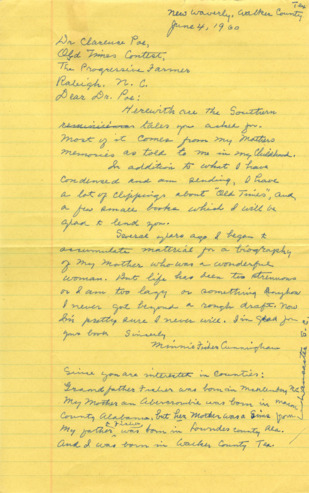 New Waverly, Walker County Tex
June 4, 1960
Dr Clarence Poe,
Old Times Contest,
The Progressive Farmer
Raleigh. N. C.
Dear Dr. Poe:
Herewith are the Southern
tales you asked for.
Most of it comes from my Mothers
memories as told to me in my childhood.
In addition to what I have
condensed and am sending, I have
a lot of clippings about "Old Times", and
a few small books which I will be
glad to lend you.
Several years ago I began to
assumulate material for a biography
of my Mother who was a wonderful
woman. But life has been too strenuous
or I am too lazy or something. Anyhow
I never got beyond a rough draft. Now
I'm pretty sure I never will. I'm glad for
your book Sincerely
Minnie Fisher Cunningham
Since you are interested in Counties:
Grandfather Fisher was born in Mecklenburg N.C.
My Mother an Abercrombie was born in Macon
County Alabama, but her Mother was a Sims from
Lancaster S.C.
My father was born in Lowndes county Ala.
And I was born in Walker County Tex.